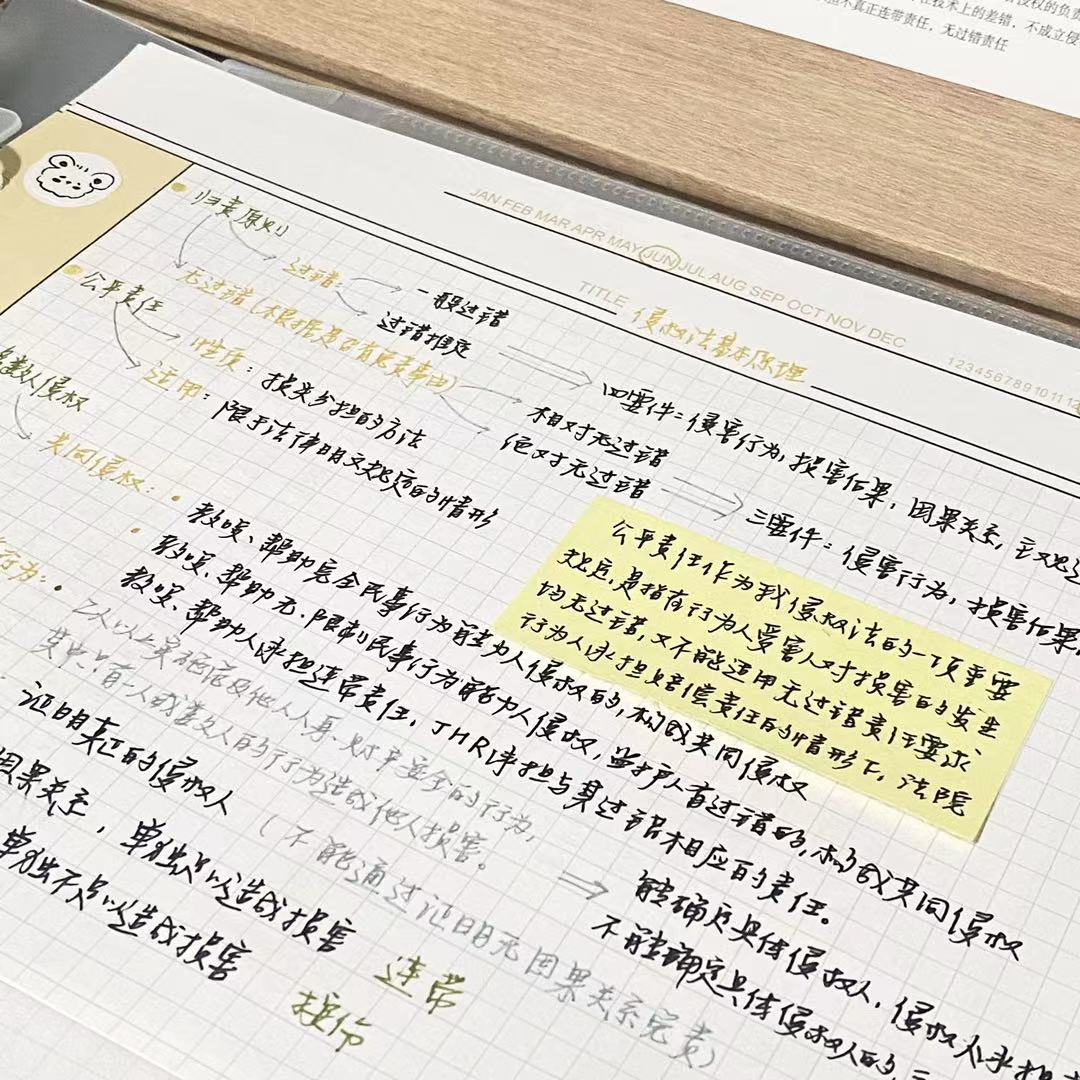 侵权的负责
在技术上的差错，不成立侵
担不真正连带责任，无过错责任
JAN FEB MAR APR MAY JUN JUL AUG SEP OCT NOV DEC
1 2 3 4 5 6 7 8 9 10 11 12
TITLE 侵权法基本原理
归责原则
过错：
一般过错
过错推定
四要件：侵害行为，损害结果，因果关系，主观过
无过错（根据是否有免责事由）
相对无过错
绝对无过错
三要件：侵害行为，损害结果，
公平责任
性质：损失分担的方法
运用：限于法律明文规定的情形
公平责任作为我侵权法的一项重要
规定，是指在行为人受害人对损害的发生
均无过错，又不能适用无过错责任要求
行为人承担赔偿责任的情形下，法院
数人侵权
共同侵权：
教唆、帮助完全民事行为能力人侵权的，构成共同侵权
教唆、帮助无、限制民事行为能力人侵权，监护人有过错的，构成共同侵权
教唆、帮助人承担连带责任，JHR承担与其过错相应的责任。
行为：
乙人以上实施危及他人人身、财产安全的行为，
其中只有一人或数人的行为造成他人损害。
能确定具体侵权人，侵权人承担
不能确定具体侵权人的，
证明真正的侵权人
（不能通过证明无因果关系免责）
因果关系，单独足以造成损害 连带
单独不足以造成损害 按份